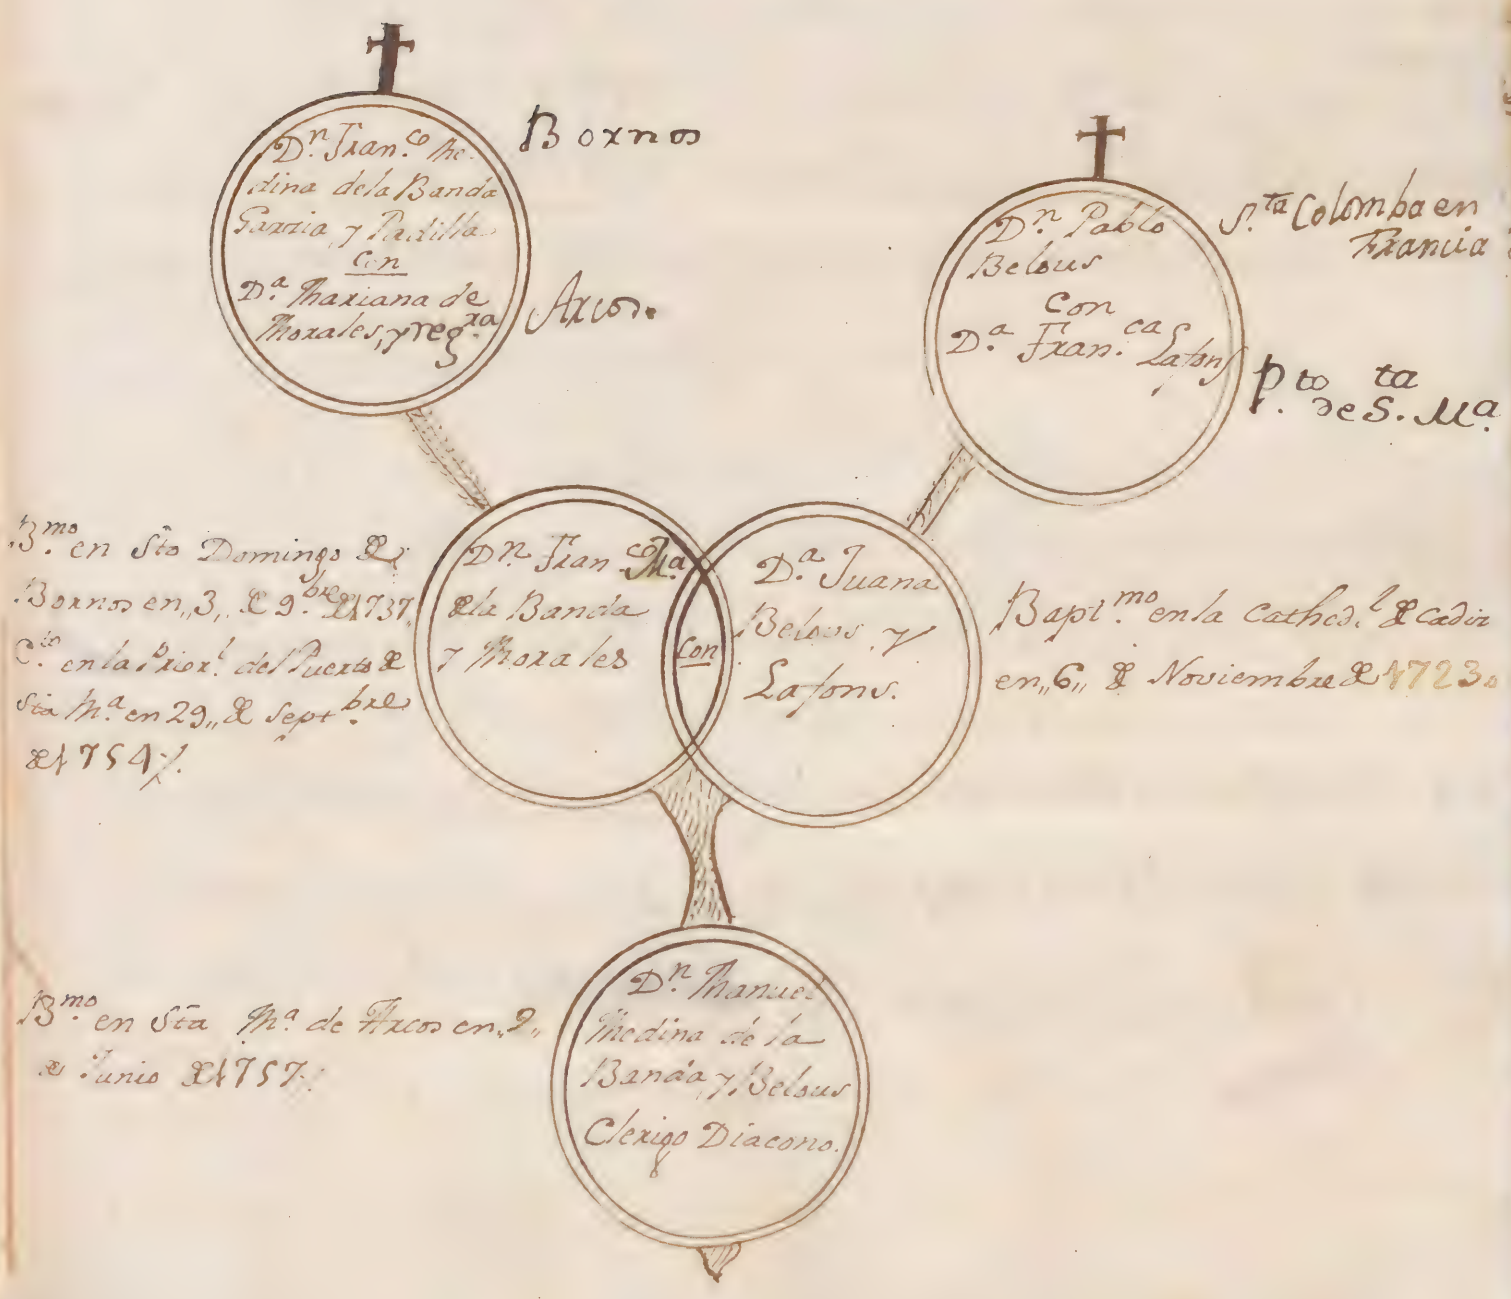 Dn. Fran.co Me-
dina dela Banda
Garzia, y Padilla
con
Da. Mariana de
Morales, y reg.ra
Bornos
Arcos.
Dn. Pablo
Belous
con
Da. Fran.ca Lafons
S.ta Colomba en
Francia
Pto. de Sta. Ma.
B.mo en Sto Domingo de
Bornos en,,3,, de 9.bre de 1737.
C.do en la Prior.l del Puerto de
Sta Ma. en 29,, de Sept.bre
de 1754
Dn. Fran.co Ma.
dela Banda
y Morales
con
Da. Juana
Belous, y
Lafons.
Bapt.mo en la Cathed.l de Cadiz
en,,6,, de Noviembre de 1723.
B.mo en Sta Ma. de Arcos en,,2,,
de Junio de 1757
Dn. Manuel
Medina de la
Banda, y Belous
Clerigo Diacono.